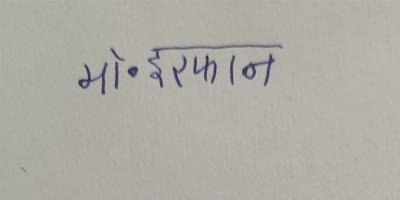 मो॰ इरफान